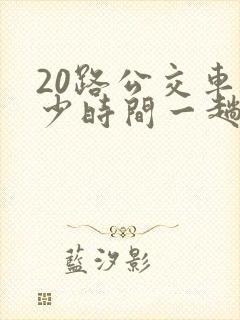 20路公交車
少時間一趟
藍汐影